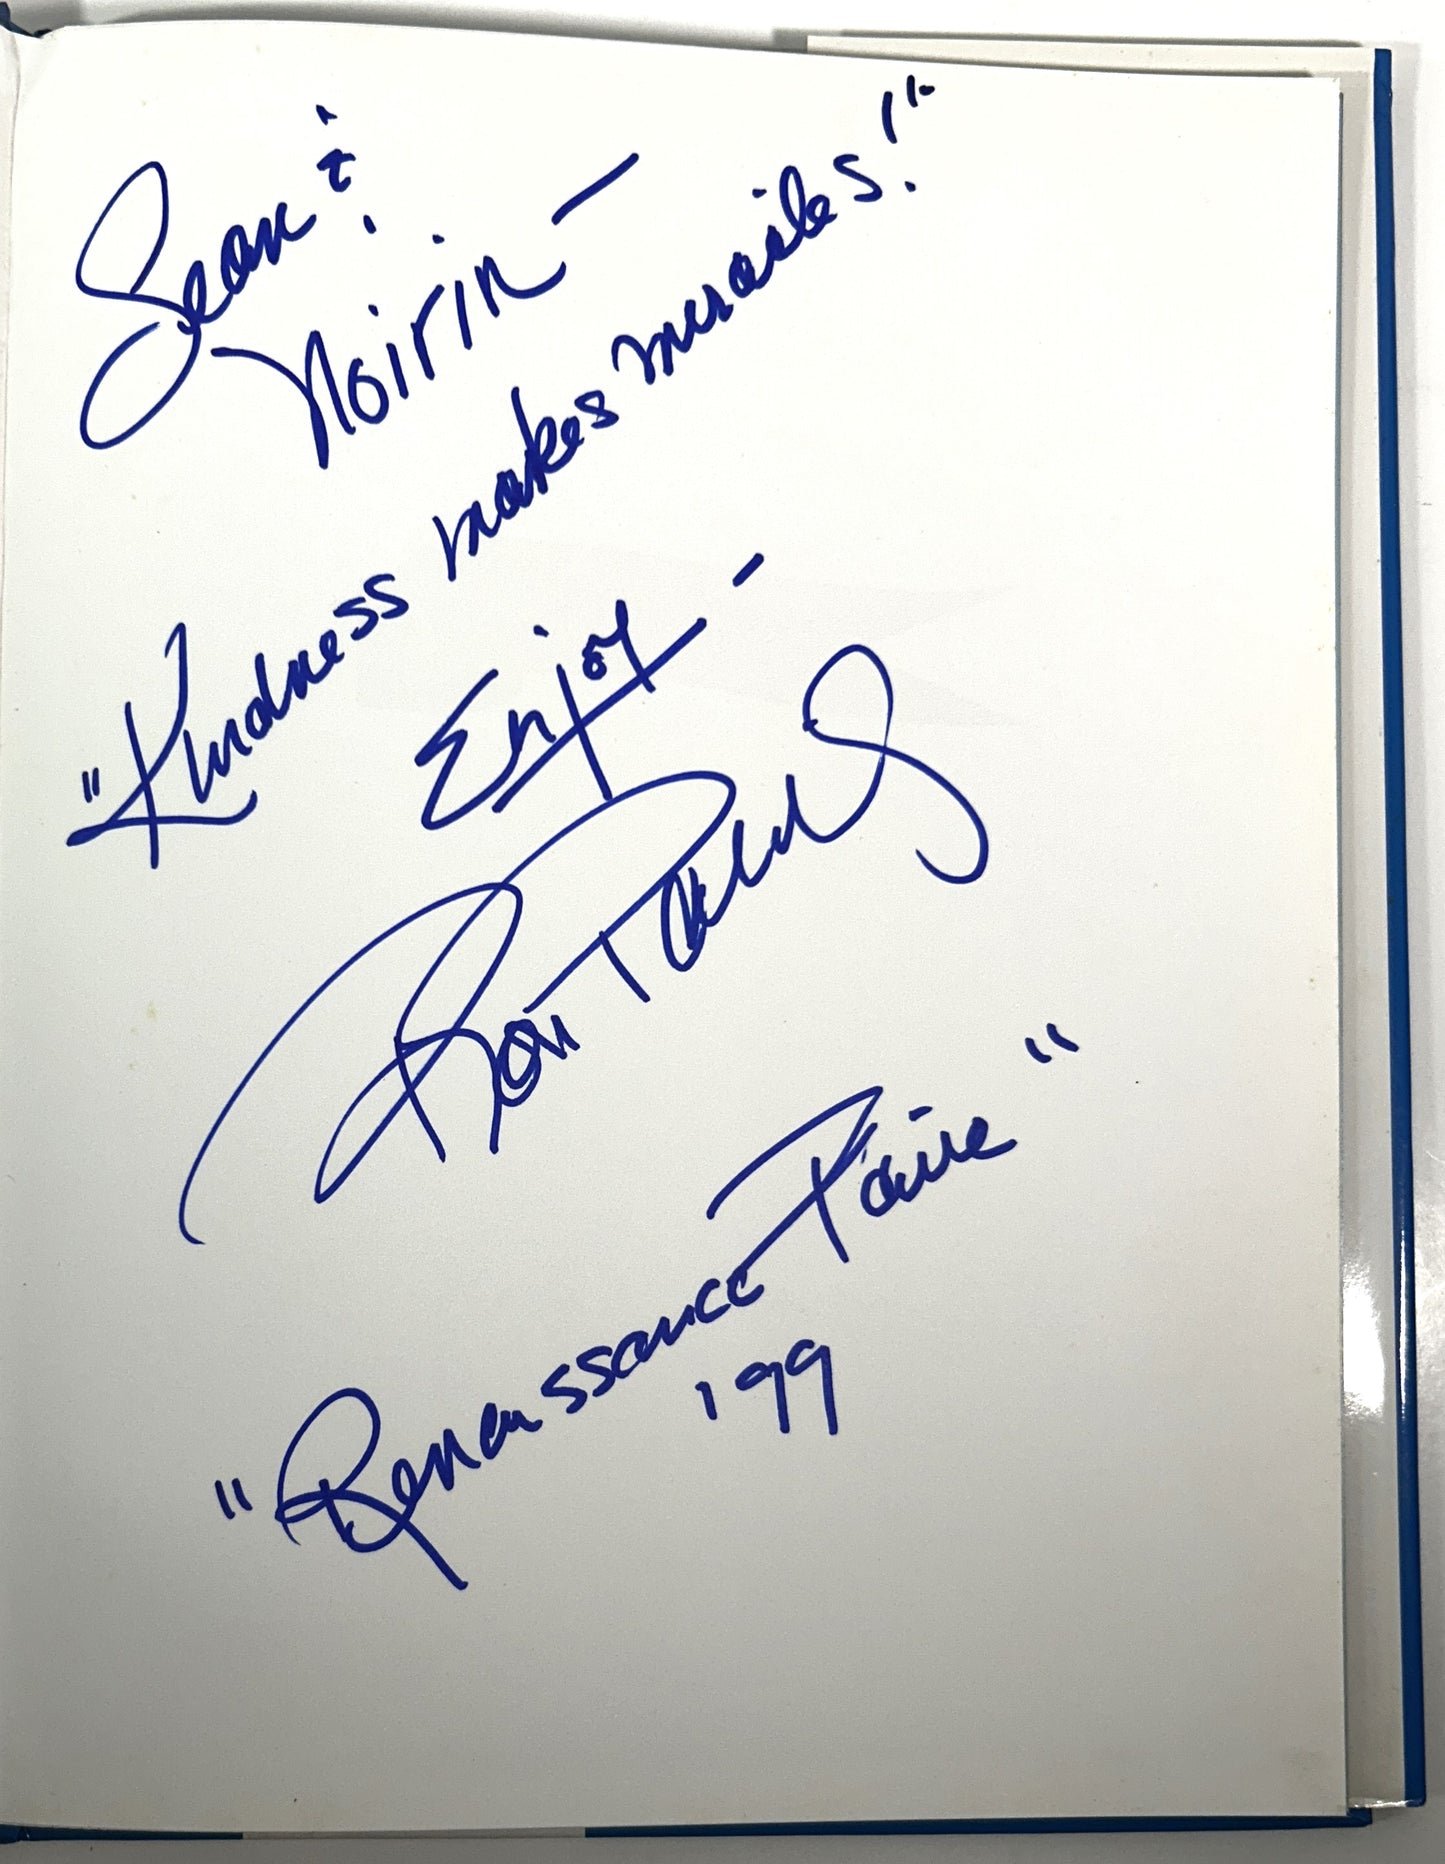 Sean &
Noirin –
"Kindness makes miracles!"
Enjoy –
Ron
"Renaissance Faire"
'99